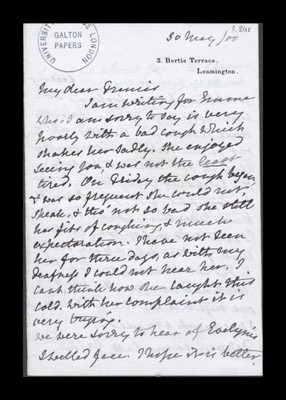 UNIVERSITY COLLEGE LONDON
GALTON
PAPERS
30 May/00
3. Bertie Terrace,
Leamington.
My dear Francis
I am writing for Emma
who I am sorry to say is very
poorly with a bad cough which
shakes her sadly. She enjoyed
seeing you, & was not the least
tired. On Friday the cough began
& was so frequent she could not
speak, & tho' not so bad she still
has fits of coughing, & much
expectoration. I have not seen
her for three days, as with my
deafness I could not hear her, I
cant think how she caught this
cold. With her complaint it is
very trying.
We were sorry to hear of Evelyne's
swelled face. I hope it is better